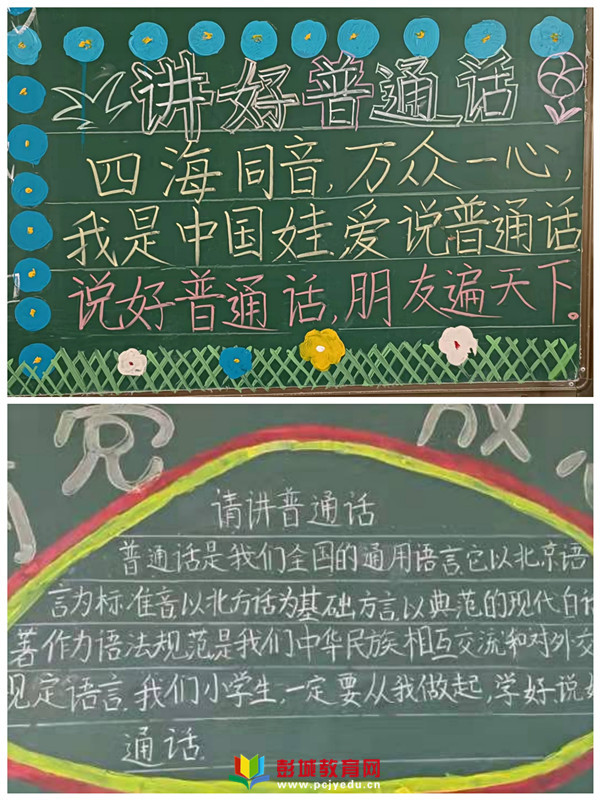 讲好普通话
四海同音,万众一心,
我是中国娃,爱说普通话
说好普通话,朋友遍天下。
请讲普通话
普通话是我们全国的通用语言,它以北京语
言为标准音以北方话为基础方言,以典范的现代白话
著作为语法规范是我们中华民族相互交流和对外交
定语言,我们小学生,一定要从我做起,学好,说好
通话
彭城教育网
www.pcjyedu.cn